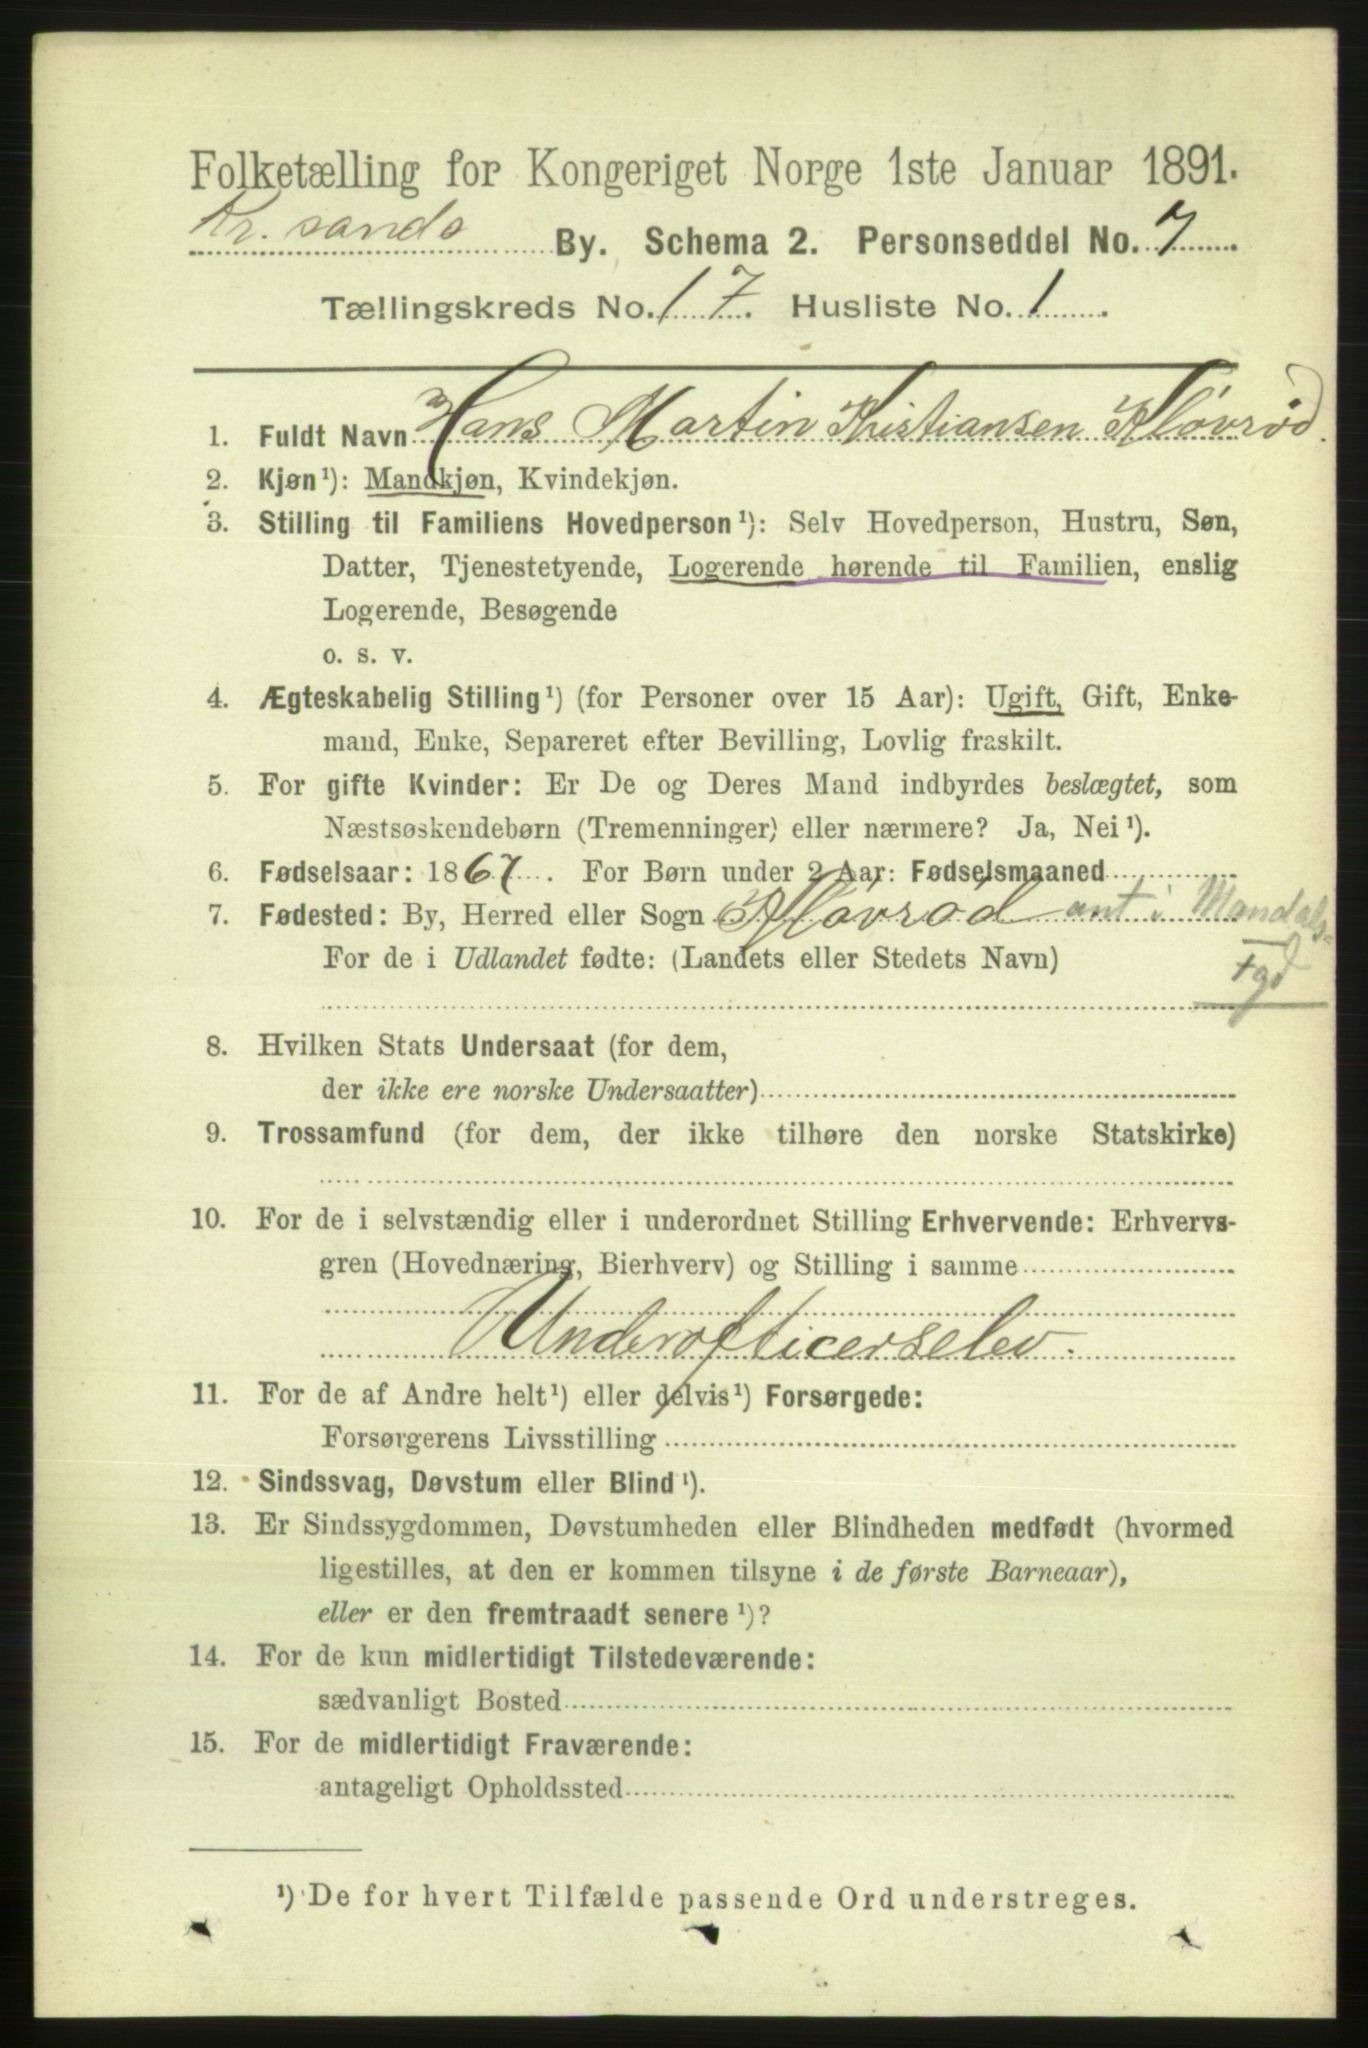 Folketælling for Kongeriget Norge 1ste Januar 1891.
Kr. sands By. Schema 2. Personseddel No. 7
Tællingskreds No. 17. Husliste No. 1.
1. Fuldt Navn Hans Martin Kristiansen Kløvrød.
2. Kjøn¹): Mandkjøn, Kvindekjøn.
3. Stilling til Familiens Hovedperson¹): Selv Hovedperson, Hustru, Søn,
Datter, Tjenestetyende, Logerende hørende til Familien, enslig
Logerende, Besøgende
o. s. v.
4. Ægteskabelig Stilling¹) (for Personer over 15 Aar): Ugift, Gift, Enke-
mand, Enke, Separeret efter Bevilling, Lovlig fraskilt.
5. For gifte Kvinder: Er De og Deres Mand indbyrdes beslægtet, som
Næstsøskendebørn (Tremenninger) eller nærmere? Ja, Nei¹).
6. Fødselsaar: 1867. For Børn under 2 Aar: Fødselsmaaned
7. Fødested: By, Herred eller Sogn Kløvrød ant i Mandals-
For de i Udlandet fødte: (Landets eller Stedets Navn)
Fgd
8. Hvilken Stats Undersaat (for dem,
der ikke ere norske Undersaatter)
9. Trossamfund (for dem, der ikke tilhøre den norske Statskirke)
10. For de i selvstændig eller i underordnet Stilling Erhvervende: Erhvervs-
gren (Hovednæring, Bierhverv) og Stilling i samme
Underofficerselev.
11. For de af Andre helt¹) eller delvis¹) Forsørgede:
Forsørgerens Livsstilling
12. Sindssvag, Døvstum eller Blind¹).
13. Er Sindssygdommen, Døvstumheden eller Blindheden medfødt (hvormed
ligestilles, at den er kommen tilsyne i de første Barneaar),
eller er den fremtraadt senere¹)?
14. For de kun midlertidigt Tilstedeværende:
sædvanligt Bosted
15. For de midlertidigt Fraværende:
antageligt Opholdssted
¹) De for hvert Tilfælde passende Ord understreges.